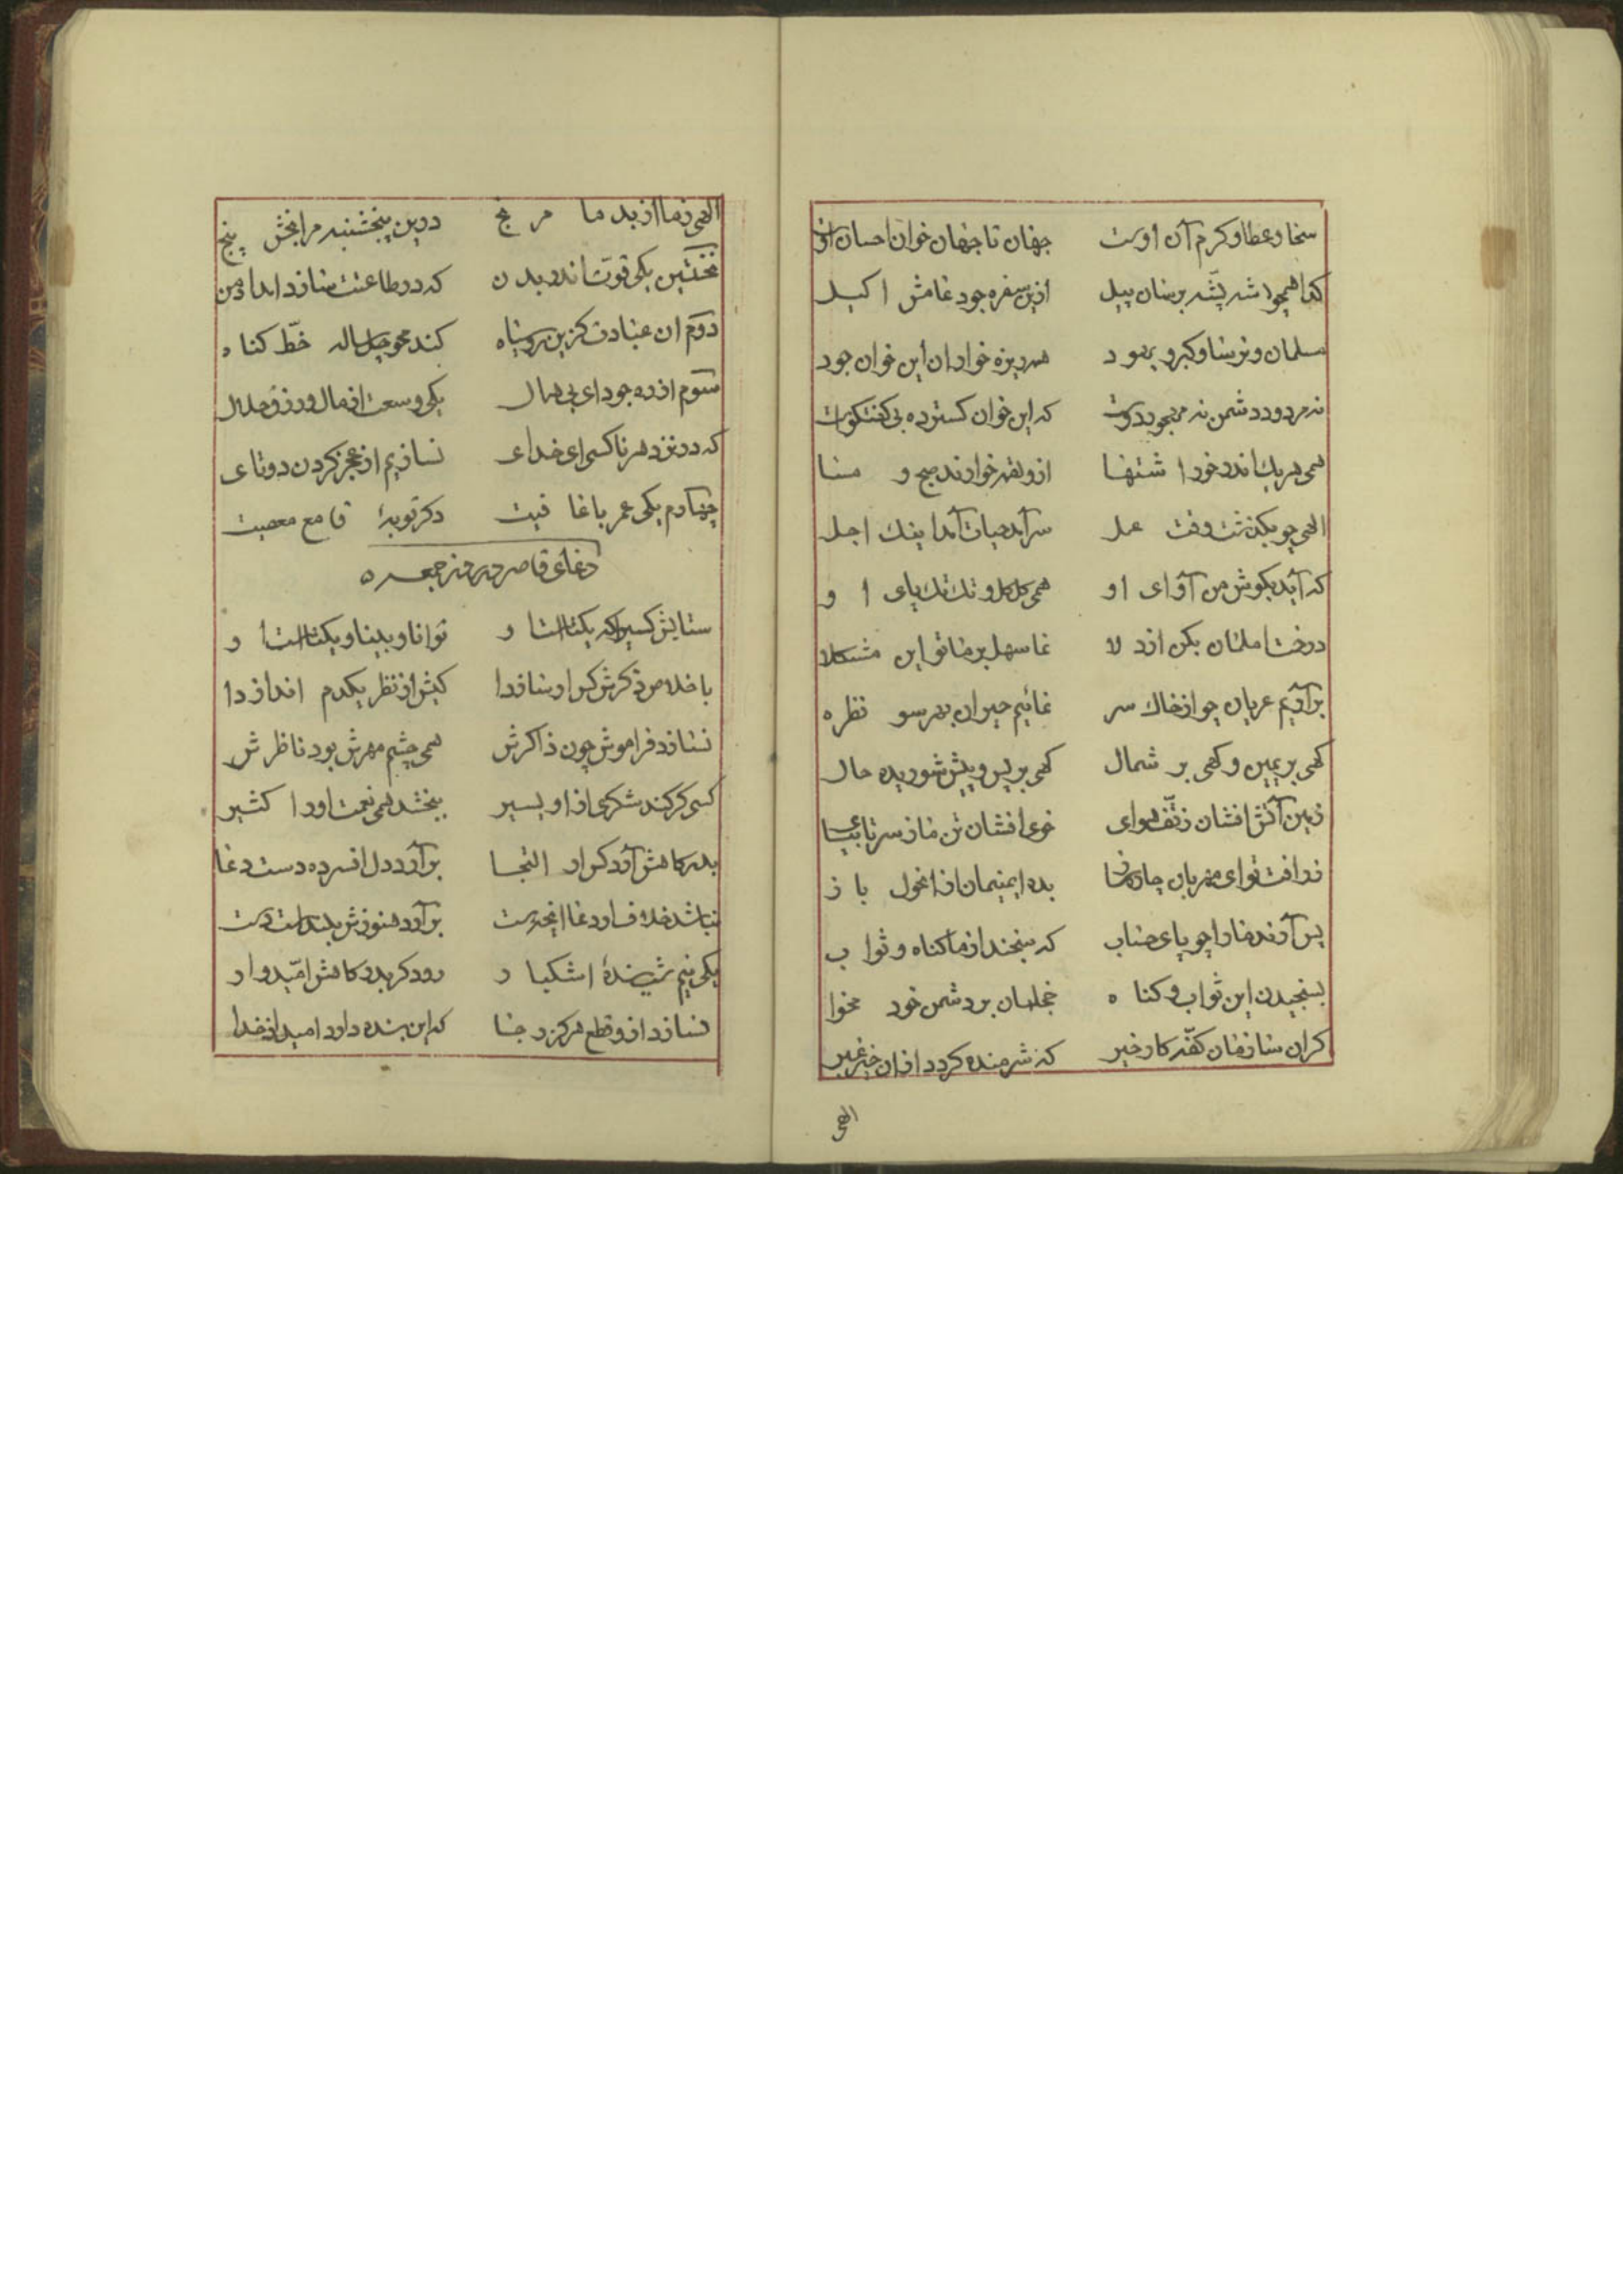 سخا و عطا و کرم آن اوست جهان تا جهان خوان احسان اوست
کدا همچو شه پشه برسان پیل ازین سفره جود عامش اکیل
مسلمان و ترسا و کبر و یهود همه ریزه خواران این خوان جود
نه مردود دشمن نه مهجور دوست که این خوان کسترده بی کفتکوست
همی هر یک اندر خور اشتها ازو لقمه خوارند صبح و مسا
الهی چو بکذشت وقت عمل سر آمد حیات آمد اینک اجل
که آید بکوش من آوای او همی کل کل و تک تک پای او
درخت املمان بکن از دلا نما سهل بر ما تو این مشکلا
بر آریم عریان چو از خاک سر نمائیم حیران بهر سو نظره
کهی بر یمین و کهی بر شمال کهی بر پس و پیش شوریده حال
زمین آتش افشان ز تف هوای خوی افشان تن ما ز سر تا بپای
ز رافت تو ای مهربان چاره ساز بده ایمنیمان از اغول باز
پس آرند ما را چو پای حساب که سنجند از ما کناه و ثواب
بسنجیدن این ثواب و کناه خجلمان بر دشمن خود مخوا
کران سازمان کفه کار خیر که شرمنده کردد ازان خیر غیر
الهی
الهی ز ما از بد ما مرنج درین پنجشنبه مرا بخش پنج
نخستین یکی قوت اندر بدن که در طاعتت سازد امداد من
دوم ان عبادت کزین روسیاه کند محو چل ساله خط کناه
سوم از ره جود ای بی همال یکی وسعت از مال و رزق حلال
که در نزد هر ناکسی ای خدای نسازیم از عجز کردن دوتای
چهارم یکی عمر با عافیت دکر توبهٔ قامع معصیت
دعای قاصر در روز جمعه
ستایش کسیرا که یکتاست او توانا و بینا و یکتاست او
باخلاص ذکرش کر او سازدا کیش از نظر یکدم اندازدا
نسازد فراموش چون ذاکرش همی چشم مهرش بود ناظرش
کسی کر کند شکری از او یسیر ببخشد همی نعمت او را کثیر
بدرکاهش آرد کر او التجا بر آرد دل افسرده دست دعا
نباشد خلاف او را دعا انچه هست بر آرد هنوزش بلند است دست
یکی نیم شرمندهٔ اشکبار رود کر بدرکاهش امیدوار
نسازد ازو قطع هرکز رجا که این بنده دارد امید از خدا